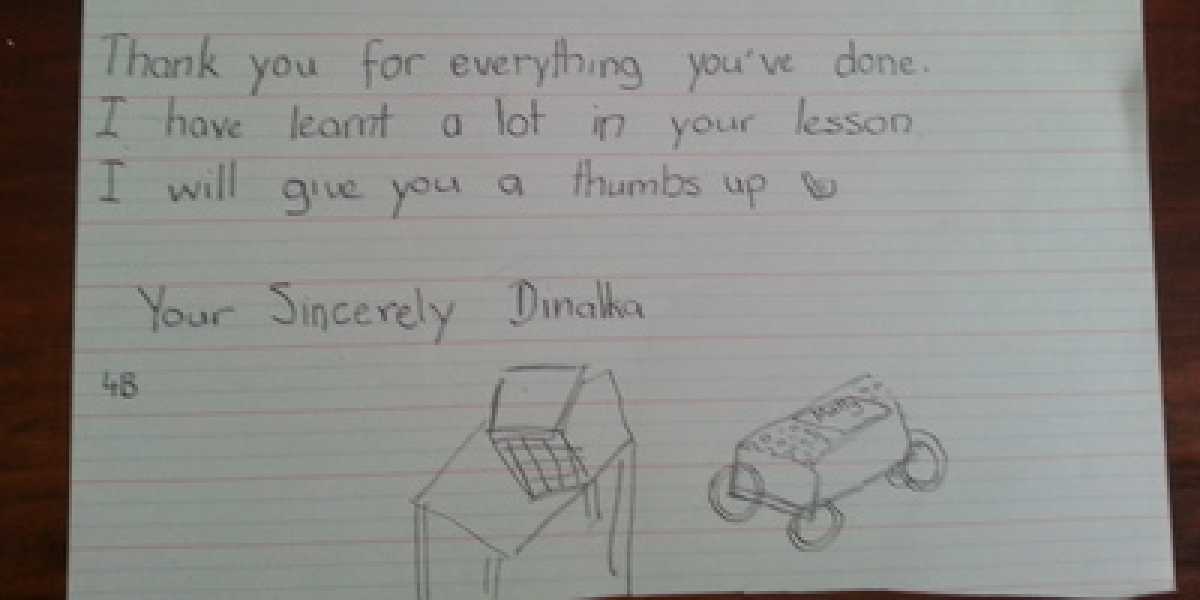 Thank you for everything you've done.
I have learnt a lot in your lesson
I will give you a thumbs up
Your Sincerely Dinalka
4B